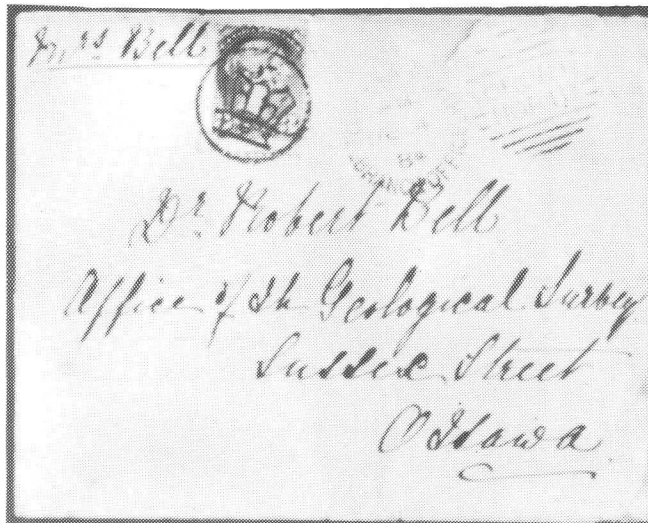 Mrs Bell
84
BRANCH OFFICE
Dr. Robert Bell
Office of the Geological Survey
Sussex Street
Ottawa